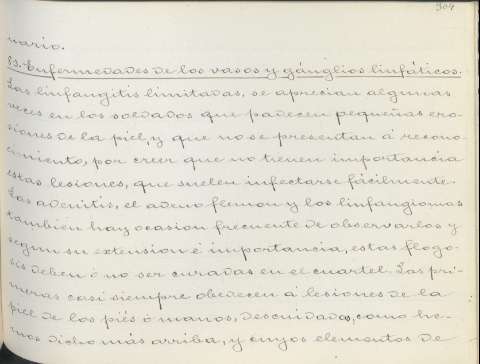 304
nario.
83. Enfermedades de los vasos y gánglios linfáticos.
Las linfangitis limitadas, se aprecian algunas
veces en los soldados que padecen pequeñas ero-
siones de la piel, y que no se presentan á recono-
cimiento, por creer que no tienen importancia
estas lesiones, que suelen infectarse fácilmente.
Las adenitis, el adeno flemon y los linfangiomas
también hay ocasion frecuente de observarlos y
segun su extension é importancia, estas flogo-
sis deben ó no ser curadas en el cuartel. Las pri-
meras casi siempre obedecen á lesiones de la
piel de los piés ó manos, descuidadas, como he-
mos dicho más arriba, y cuyos elementos de